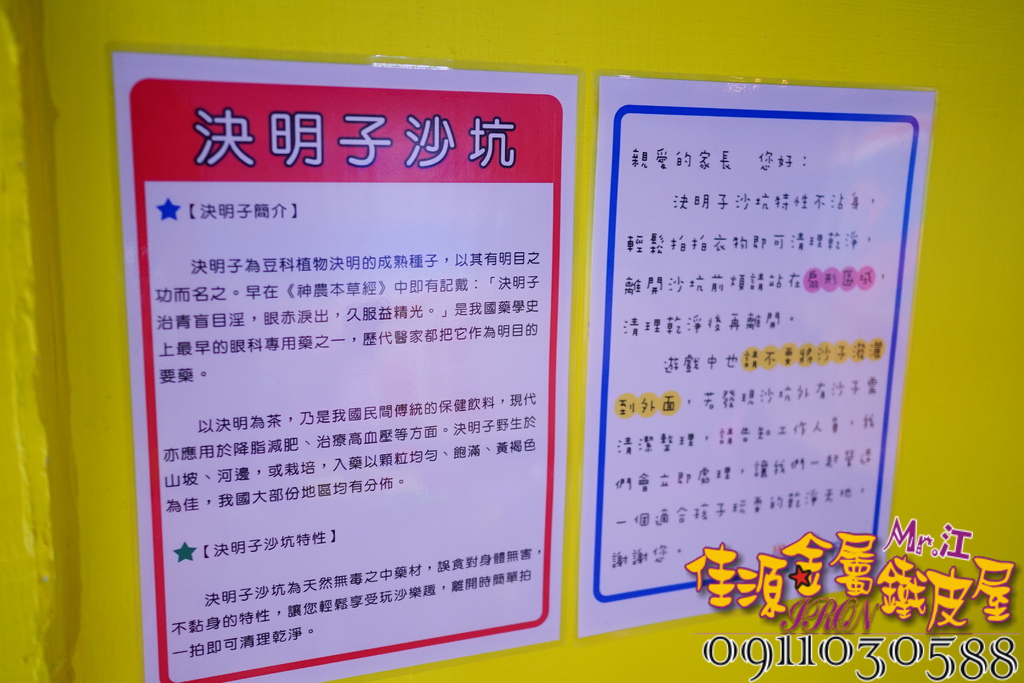 決明子沙坑
★【決明子簡介】
決明子為豆科植物決明的成熟種子，以其有明目之
功而名之。早在《神農本草經》中即有記戴：「決明子
治青盲目淫，眼赤淚出，久服益精光。」是我國藥學史
上最早的眼科專用藥之一，歷代醫家都把它作為明目的
要藥。
以決明為茶，乃是我國民間傳統的保健飲料，現代
亦應用於降脂減肥、治療高血壓等方面。決明子野生於
山坡、河邊，或栽培，入藥以顆粒均勻、飽滿、黃褐色
為佳，我國大部份地區均有分佈。
★【決明子沙坑特性】
決明子沙坑為天然無毒之中藥材，誤食對身體無害，
不黏身的特性，讓您輕鬆享受玩沙樂趣，離開時簡單拍
一拍即可清理乾淨。
親愛的家長 您好：
決明子沙坑特性不沾身，
輕鬆拍拍衣物即可清理乾淨，
離開沙坑前煩請站在扇形區域，
清理乾淨後再離開。
遊戲中也請不要將沙子潑灑
到外面，若發現沙坑外有沙子需
清潔整理，請告知工作人員，我
們會立即處理，讓我們一起營造
一個適合孩子玩耍的乾淨天地，
謝謝您。
Mr.江
佳源金屬鐵皮屋
IRON
0911030588